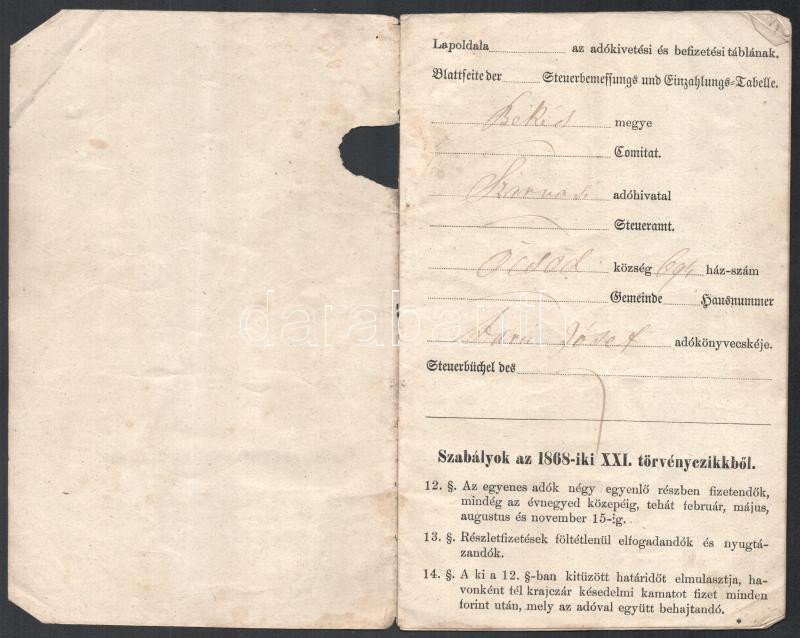 Lapoldala az adókivetési és befizetési táblának.
Blattseite der Steuerbemessungs und Einzahlungs-Tabelle.
Békés megye
Comitat.
Szarvasi adóhivatal
Steueramt.
Öcsöd község ház-szám
Gemeinde Hausnummer
darabanth
József adókönyvecskéje.
Steuerbüchel des
Szabályok az 1868-iki XXI. törvényczikkből.
12. §. Az egyenes adók négy egyenlő részben fizetendők,
mindég az évnegyed közepéig, tehát február, május,
augustus és november 15-ig.
13. §. Részletfizetések föltétlenül elfogadandók és nyugtá-
zandók.
14. §. A ki a 12. §-ban kitüzött határidőt elmulasztja, ha-
vonként fél krajczár késedelmi kamatot fizet minden
forint után, mely az adóval együtt behajtandó.